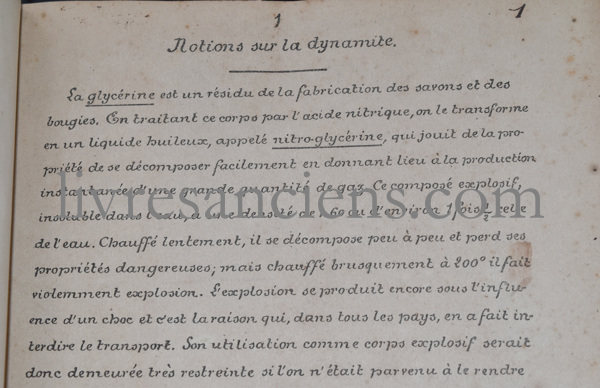 1 1
Notions sur la dynamite.
La glycérine est un résidu de la fabrication des savons et des
bougies. En traitant ce corps par l'acide nitrique, on le transforme
en un liquide huileux, appelé nitro-glycérine, qui jouit de la pro-
priété de se décomposer facilement en donnant lieu à la production
instantanée d'une grande quantité de gaz. Ce composé explosif,
livresanciens.com
insoluble dans l'eau, a une densité de 1.60 ou d'environ 1 fois ½ celle
de l'eau. Chauffé lentement, il se décompose peu à peu et perd ses
propriétés dangereuses; mais chauffé brusquement à 200° il fait
violemment explosion. L'explosion se produit encore sous l'influ-
ence d'un choc et c'est la raison qui, dans tous les pays, en a fait in-
terdire le transport. Son utilisation comme corps explosif serait
donc demeurée très restreinte si l'on n'était parvenu à le rendre